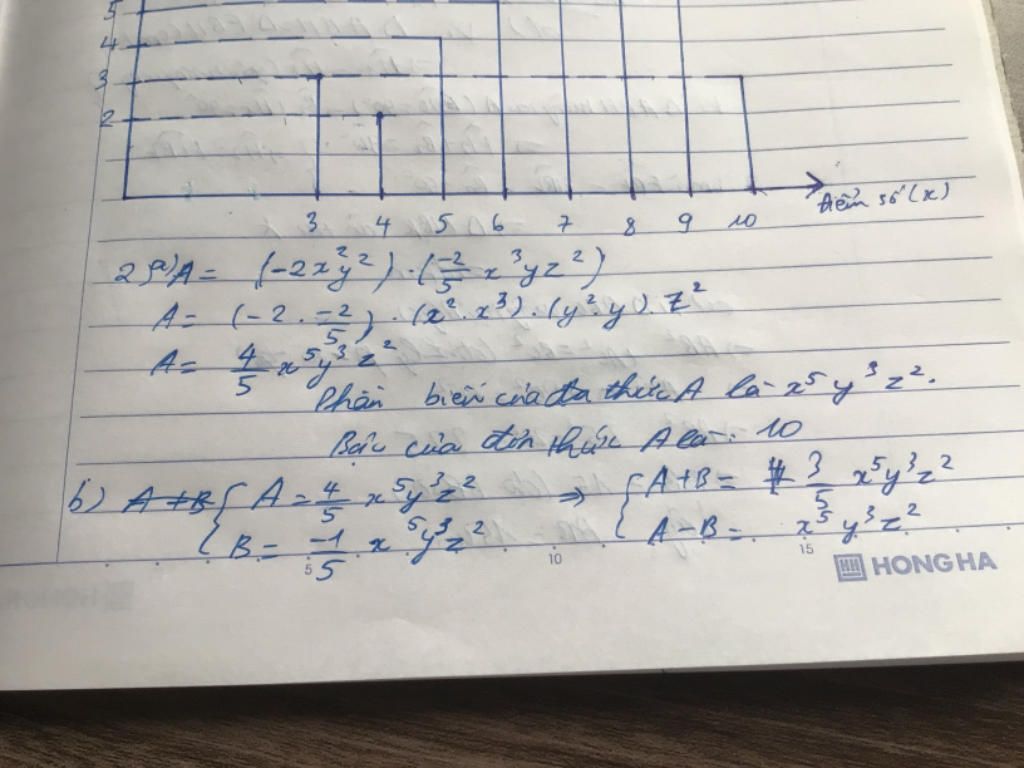 5
4
3
2
3 4 5 6 7 8 9 10 điểm số (x)
2) a) A = (-2x²y²) · (-2/5 x³yz²)
A = (-2 · -2/5) · (x² · x³) · (y² · y) · z²
A = 4/5 x⁵y³z²
Phần biến của đa thức A là x⁵y³z².
Bậc của đơn thức A là: 10
b) A + B { A = 4/5 x⁵y³z² => { A + B = 3/5 x⁵y³z²
B = -1/5 x⁵y³z² A - B = x⁵y³z²
5 10 15
HONG HA